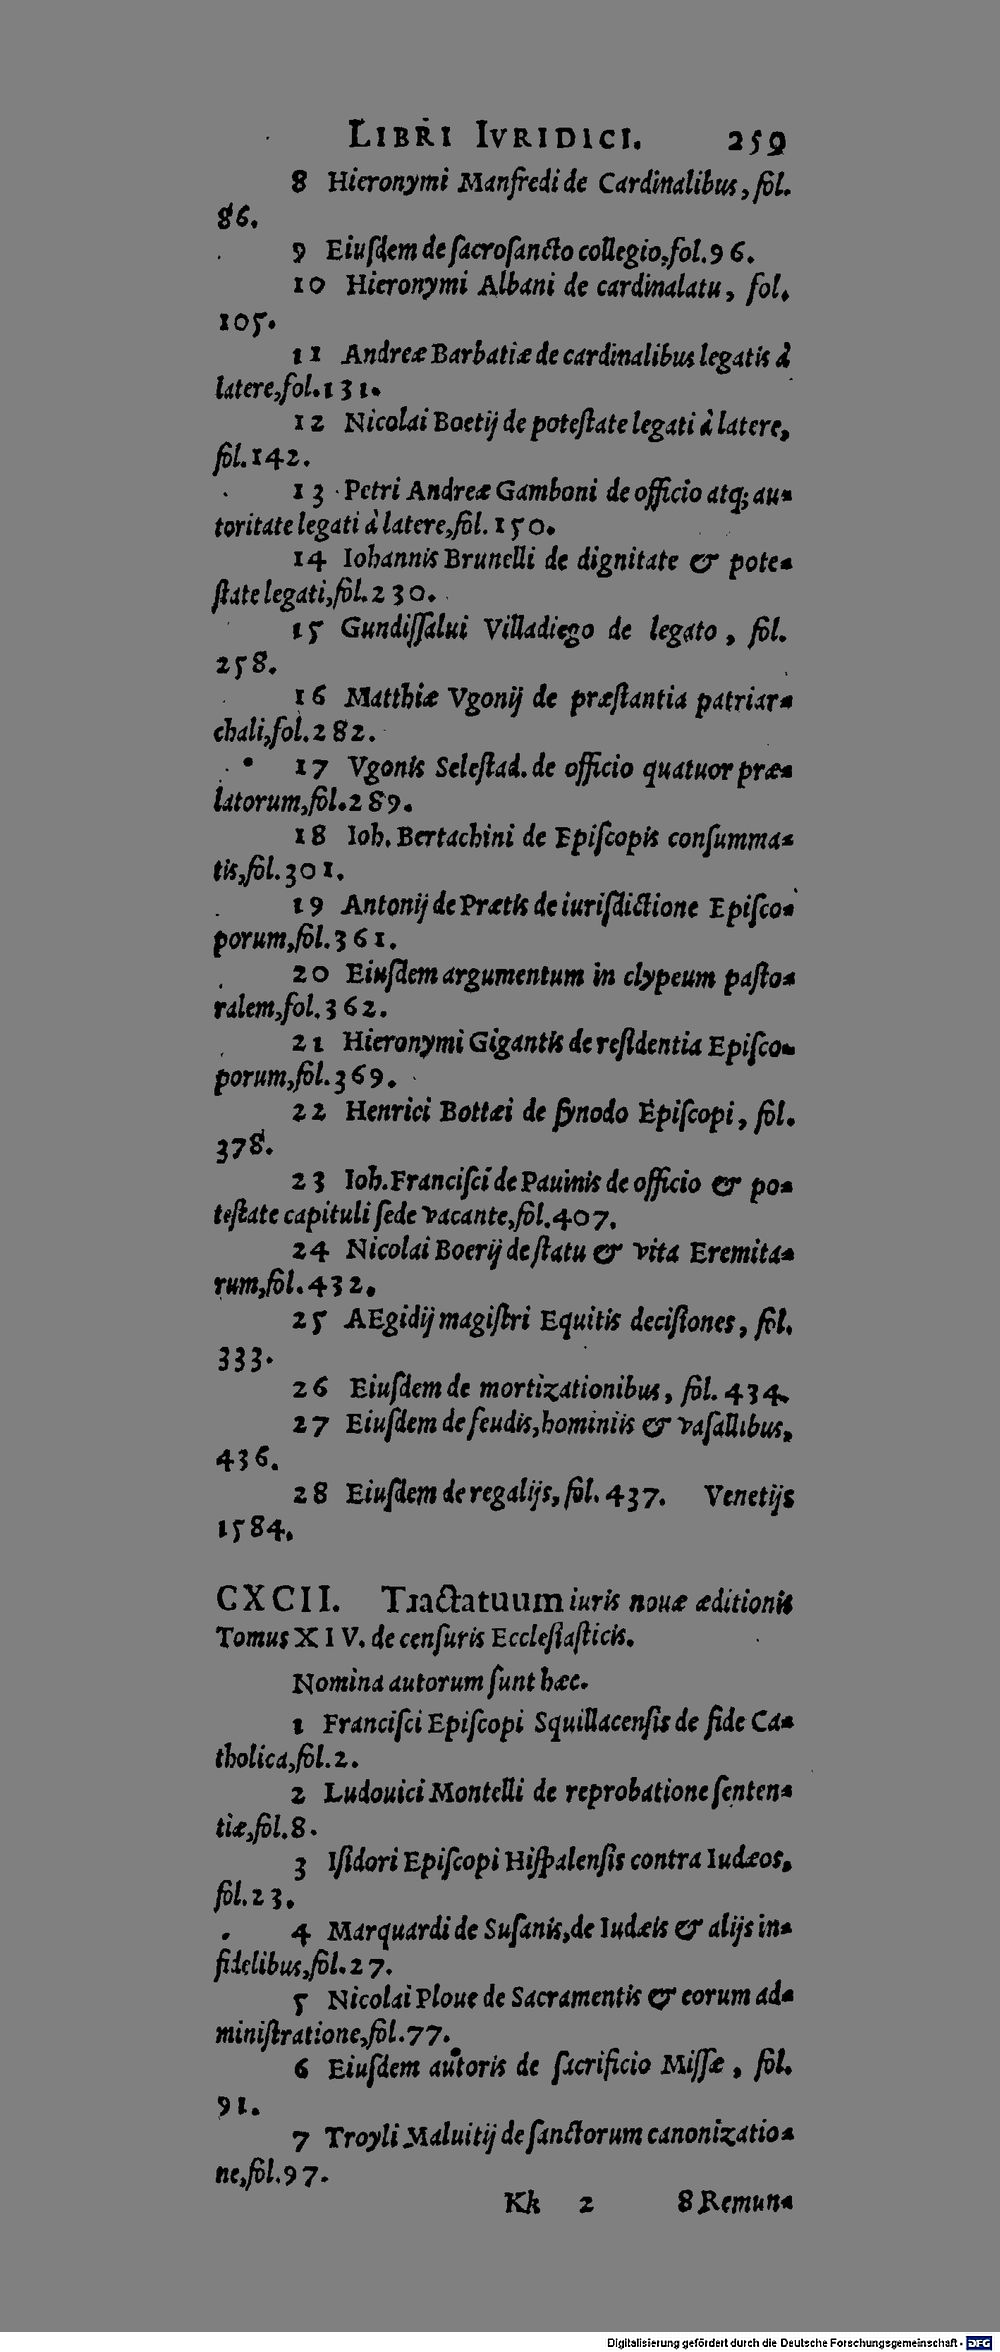 LIBRI IVRIDICI. 259
8 Hieronymi Manfredi de Cardinalibus, fol.
86.
9 Eiuſdem de ſacroſancto collegio, fol. 96.
10 Hieronymi Albani de cardinalatu, fol.
105.
11 Andreæ Barbatiæ de cardinalibus legatis à
latere, fol. 131.
12 Nicolai Boetij de poteſtate legati à latere,
fol. 142.
13 Petri Andreæ Gamboni de officio atq; au-
toritate legati à latere, fol. 150.
14 Iohannis Brunelli de dignitate & pote-
ſtate legati, fol. 230.
15 Gundiſſalui Villadiego de legato, fol.
258.
16 Matthiæ Vgonij de præſtantia patriar-
chali, fol. 282.
17 Vgonis Seleſtad. de officio quatuor præ-
latorum, fol. 289.
18 Ioh. Bertachini de Epiſcopis conſumma-
tis, fol. 301.
19 Antonij de Prætis de iuriſdictione Epiſco-
porum, fol. 361.
20 Eiuſdem argumentum in clypeum paſto-
ralem, fol. 362.
21 Hieronymi Gigantis de reſidentia Epiſco-
porum, fol. 369.
22 Henrici Bottæi de ſynodo Epiſcopi, fol.
378.
23 Ioh. Franciſci de Pauinis de officio & po-
teſtate capituli ſede vacante, fol. 407.
24 Nicolai Boerij de ſtatu & vita Eremita-
rum, fol. 432.
25 AEgidij magiſtri Equitis deciſiones, fol.
333.
26 Eiuſdem de mortizationibus, fol. 434.
27 Eiuſdem de feudis, hominiis & vaſallibus,
436.
28 Eiuſdem de regalijs, fol. 437. Venetijs
1584.
CXCII. Tractatuum iuris nouæ æditionis
Tomus XIV. de cenſuris Eccleſiaſticis.
Nomina autorum ſunt hæc.
1 Franciſci Epiſcopi Squillacenſis de fide Ca-
tholica, fol. 2.
2 Ludouici Montelli de reprobatione ſenten-
tiæ, fol. 8.
3 Iſidori Epiſcopi Hiſpalenſis contra Iudæos,
fol. 23.
4 Marquardi de Suſanis, de Iudæis & alijs in-
fidelibus, fol. 27.
5 Nicolai Ploue de Sacramentis & eorum ad-
miniſtratione, fol. 77.
6 Eiuſdem autoris de ſacrificio Miſſæ, fol.
91.
7 Troyli Maluitij de ſanctorum canonizatio-
ne, fol. 97.
Kk 2 8 Remun-
Digitalisierung gefördert durch die Deutsche Forschungsgemeinschaft - DFG